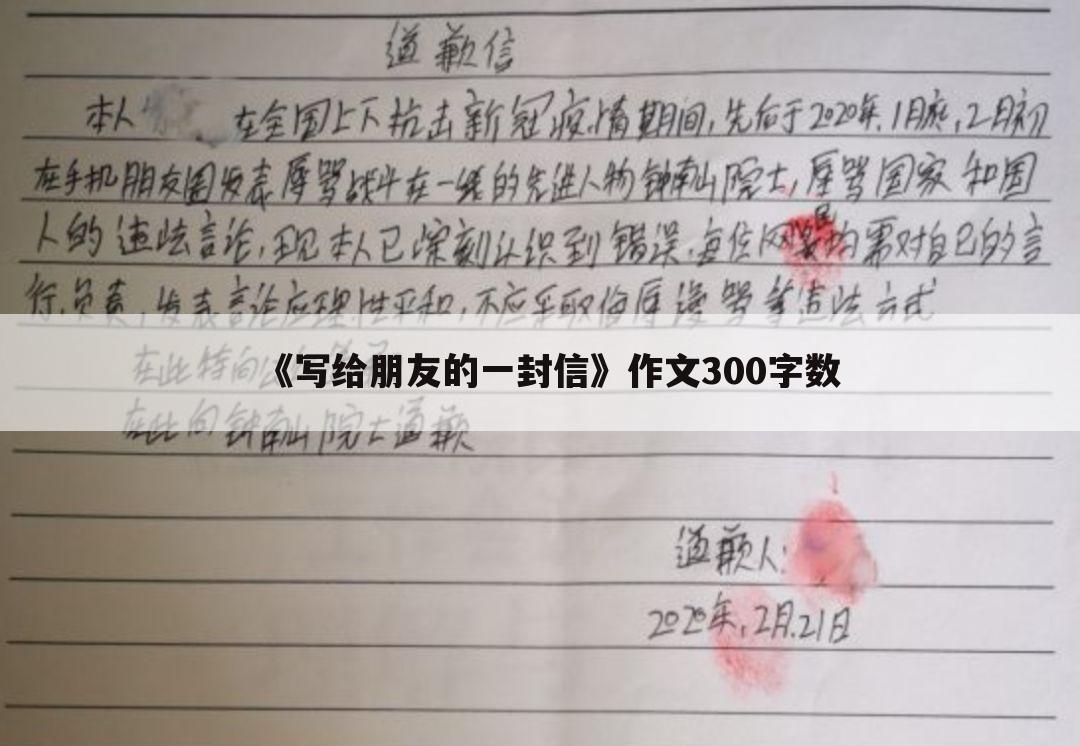 道歉信
本人 在全国上下抗击新冠疫情期间,先后于2020年.1月底,2月初
在手机朋友圈发表辱骂战斗在一线的先进人物钟南山院士,辱骂国家和国
人的违法言论,现本人已深刻认识到错误.每位网民均需对自己的言
行.负责,发表言论应理性平和,不应采取侮辱谩骂等违法方式
在此特向
《写给朋友的一封信》作文300字数
在此向钟南山院士道歉
道歉人:
2020年.2月.21日